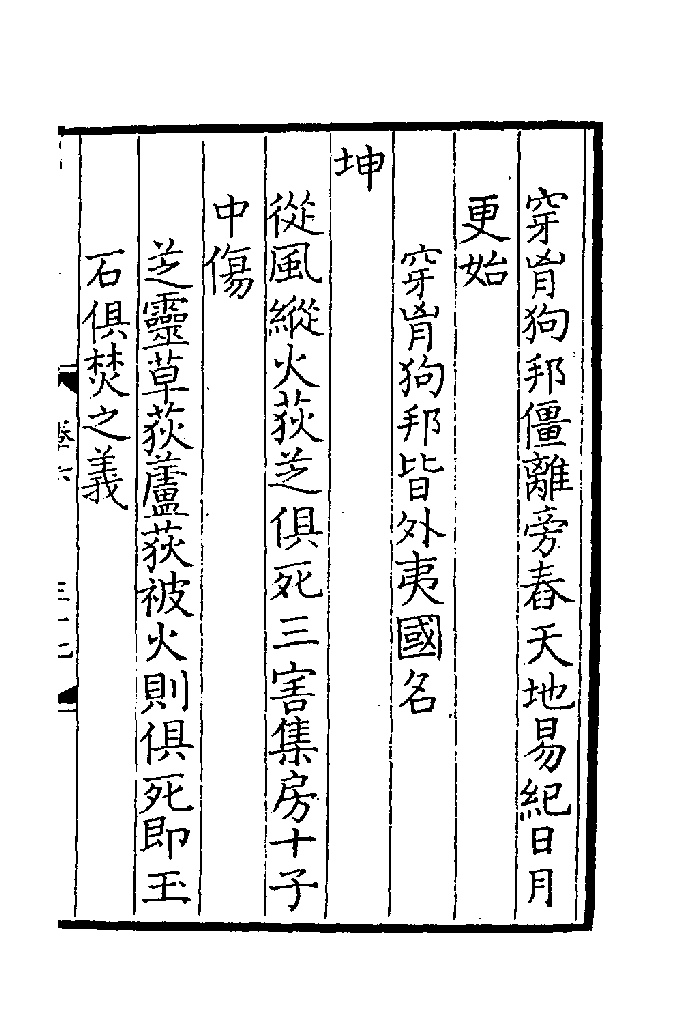 穿胷狗邦僵離旁舂天地易紀日月
更始
穿胷狗邦皆外夷國名
坤
從風縱火荻芝俱死三害集房十子
中傷
芝靈草荻蘆荻被火則俱死即玉
石俱焚之義